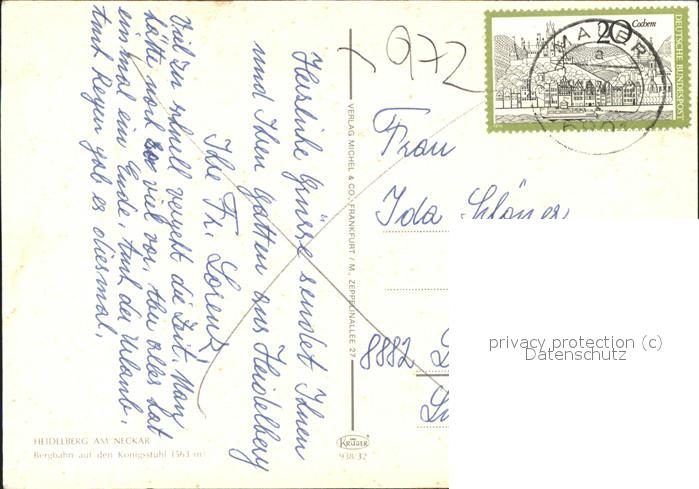 Herzliche Grüsse sendet Ihnen
und Ihrem Gatten aus Heidelberg
Ihre Fr. Lorenz
Viel zu schnell vergeht die Zeit. Man
hätte noch so viel vor, aber alles hat
einmal ein Ende, auch der Urlaub.
Auch Regen gab es diesmal.
972
Cochem
20
DEUTSCHE BUNDESPOST
a
Frau
Ida
8882
VERLAG MICHEL & CO., FRANKFURT / M., ZEPPELINALLEE 27
KRÜGER
938/32
HEIDELBERG AM NECKAR
Bergbahn auf den Königsstuhl (563 m)
privacy protection (c)
Datenschutz